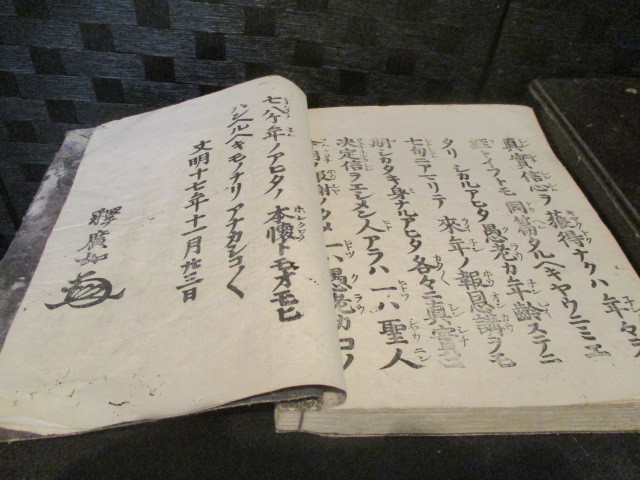 真實信心ヲ獲得ナクハ年々ヲ
經トイフトモ同篇タルヘキヤウニミエ
タリシカルアヒタ愚老カ年齢ステニ
七旬ニアマリテ來年ノ報恩講ヲモ
期シカタキ身ナルアヒタ各々ニ真實ニ
決定信ヲエシメン人アラハ一ハ聖人
今月ノ報謝ノタメ一ハ愚老カコノ
七八ケ年ノアヒタノ本懷トモオモヒ
ハンヘルヘキモノナリアナカシコ〱
文明十七年十一月廿三日
釋廣如